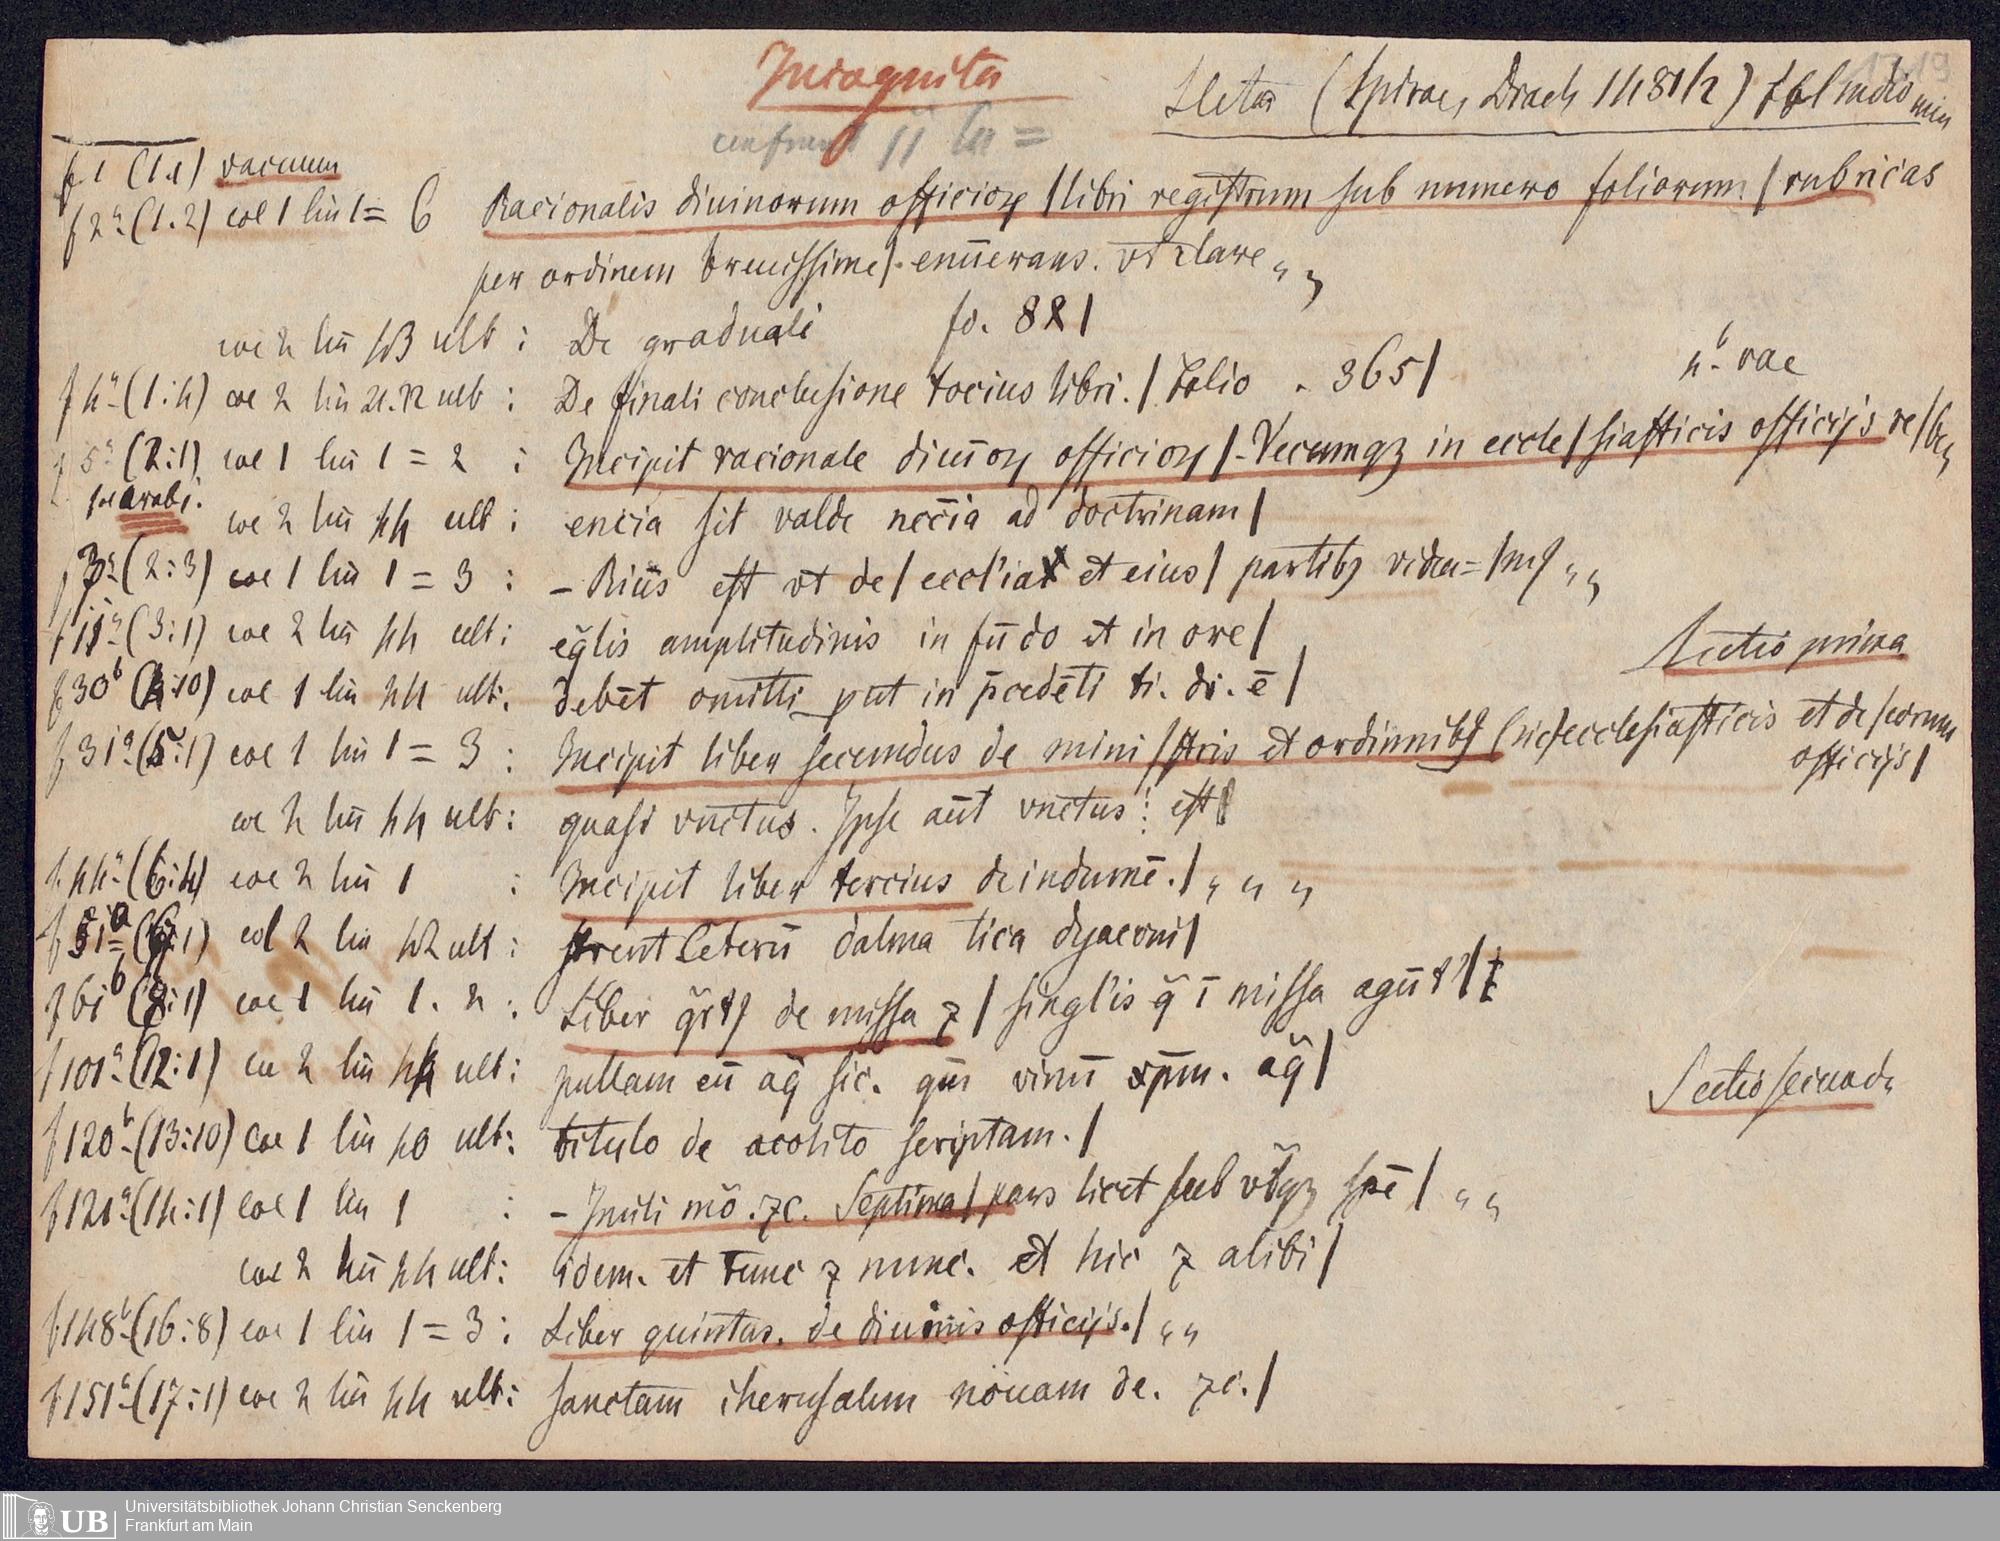 Incognita
(Spirae, Drach 1484)
f 1 (1.1) vacuum
f 2a (1.2) col 1 lin 1 = 6 Racionalis diuinorum officioꝝ / libri registrum sub numero foliorum. / rubricas
per ordinem breuissime / enūerans. vt clare „ „
col 2 lin 43 ult : De graduali fo. 82 /
f 4a (1:4) col 2 lin 21.22 ult : De finali conclusione tocius libri. / Folio . 365 / 4b vac
f 5a (2:1) col 1 lin 1 = 2 : Incipit racionale diuīoꝝ officioꝝ / -Vecumqꝫ in eccle / siasticis officijs re / bꝫ
arabi. col 2 lin 44 ult : encia sit valde nec̄ia ad doctrinam /
f 7a (2:3) col 1 lin 1 = 3 : - Riūs est vt de / eccl'ia et eius / partibꝫ viden= / „ „
f 11a (3:1) col 2 lin 44 ult : eq̄lis amplitudinis in fūdo et in ore / Sectio prima
f 30b (4:10) col 1 lin 44 ult : debēt omitti put in p̄cedēti ti. di. ē /
f 31a (5:1) col 1 lin 1 = 3 : Incipit liber secundus de mini / stris et ordinnibꝫ (sic) ecclesiasticis et de / eorum
officijs /
col 2 lin 44 ult : quasi vnctus. Ipse aūt vnctus : est /
f 44a (6:4) col 2 lin 1 : Incipit liber tercius de indumē. / „ „ „
f 51a (7:1) col 2 lin 42 ult : Ceterū dalma tica dyaconi /
f 61b (8:1) col 1 lin 1. 2 : Liber q̄rtꝰ de missa ⁊ / singl'is q̄ ī missa agūt' /
f 101a (12:1) col 2 lin 44 ult : pullam eū aq̄ sic. qm̄ vinū xp̄m. aq̄ / Sectio secunda
f 120b (13:10) col 1 lin 40 ult : titulo de acolito scriptam. /
f 121a (14:1) col 1 lin 1 : - mō. ⁊c. Septima / pars licet sub spē / „ „
col 2 lin 44 ult : idem. et tunc ⁊ nunc. et hic ⁊ alibi /
f 148b (16:8) col 1 lin 1 = 3 : Liber quintus. de diuinis officijs. / „ „
f 151a (17:1) col 2 lin 44 ult : sanctam iherusalem nouam de. ⁊c. /
UB
Universitätsbibliothek Johann Christian Senckenberg
Frankfurt am Main